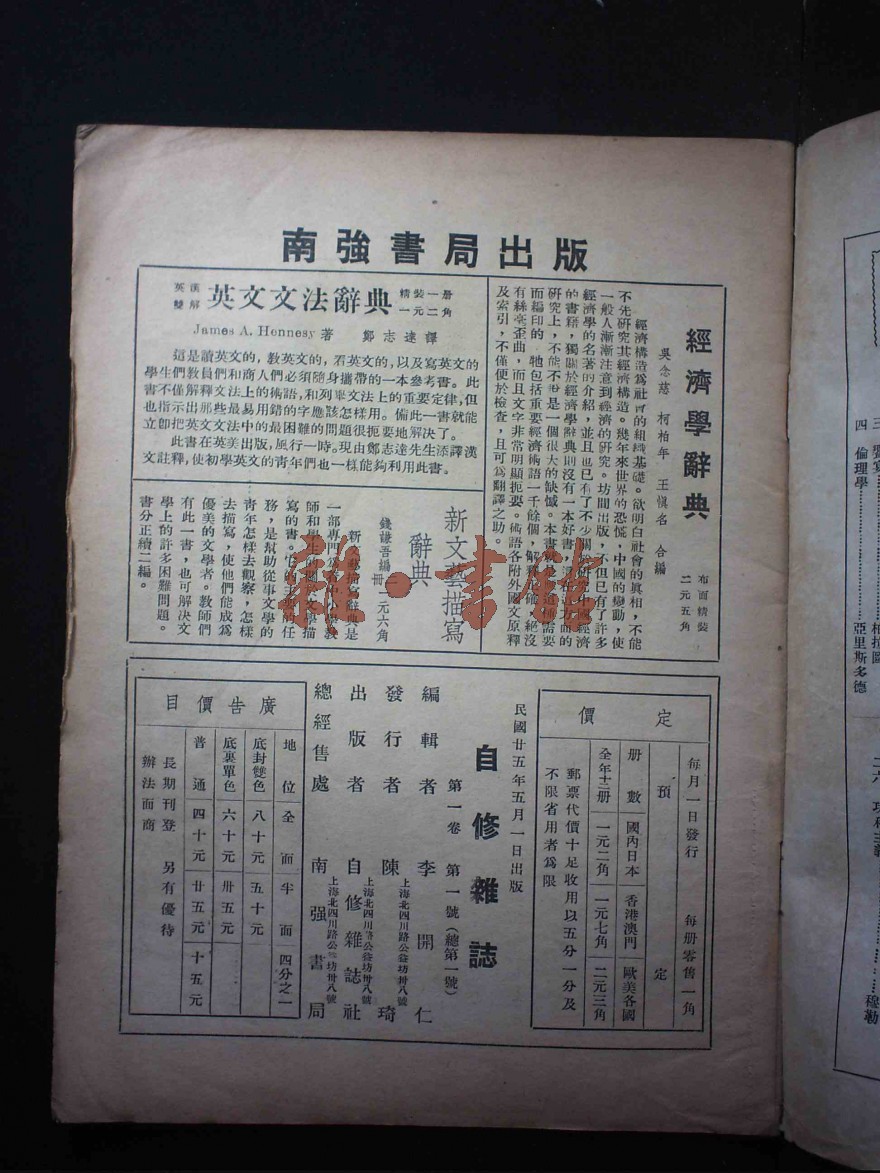 南強書局出版
經濟學辭典
吳念慈 柯柏年 王慎名 合編
布面精裝
二元五角
經濟構造爲社會的組織基礎。欲明白社會的眞相，不能
不先硏究其經濟構造。幾年來世界的恐慌，中國的變動，使
一般人漸漸注意到經濟的硏究。坊間出版，不但已有了許多
經濟學的名著的介紹，並且也已有了不少關於硏究中國經濟
的書籍，獨關於經濟學辭典則沒有一本好書，這在這方面的
硏究上，不能不說是一個很大的缺憾。本書就是
而編印的。牠包括重要經濟術語一千餘個，解釋正確，絕沒
有絲毫歪曲，而且文字非常明顯扼要。術語各附外國文原釋
及索引，不僅便於檢查，且可爲翻譯之助。
英漢雙解 英文文法辭典 精裝一册 一元二角
James A. Hennesy 著 鄭志達譯
這是讀英文的，敎英文的，看英文的，以及寫英文的
學生們敎員們和商人們必須隨身攜帶的一本參考書。此
書不僅解釋文法上的術語，和列舉文法上的重要定律，但
也指示出那些最易用錯的字應該怎樣用。備此一書就能
立卽把英文文法中的最困難的問題很扼要地解決了。
此書在英美出版，風行一時。現由鄭志達先生添譯漢
文註釋，使初學英文的青年們也一樣能夠利用此書。
新文藝描寫
辭典
錢謙吾編 一册 一元六角
新文藝描寫辭典是
一部專門
師和學生 文學描
寫的書。 主要的任
務，是幫助從事文學的
靑年怎樣去觀察，怎樣
去描寫，使他們能成爲
優美的文學者。敎師們
有此一書，也可解決文
學上的許多困難問題。
書分正續二編。
定價
每月一日發行 每册零售一角
預定
册數 國內日本 香港澳門 歐美各國
全年十二册 一元二角 一元七角 二元三角
郵票代價十足收用以五分一分及
不限省用者爲限
民國廿五年五月一日出版
自修雜誌
第一卷 第一號（總第一號）
編輯者 李開仁
上海北四川路公益坊卅八號
發行者 陳琦
上海北四川路公益坊卅八號
出版者 自修雜誌社
上海北四川路公益坊卅八號
總經售處 南强書局
廣告價目
地位 全面 半面 四分之一
底封雙色 八十元 五十元
底裏單色 六十元 卅五元
普通 四十元 廿五元 十五元
長期刊登 另有優待
辦法面商
雜·書館
四 倫理學
柏拉圖
亞里斯多德
穆勒